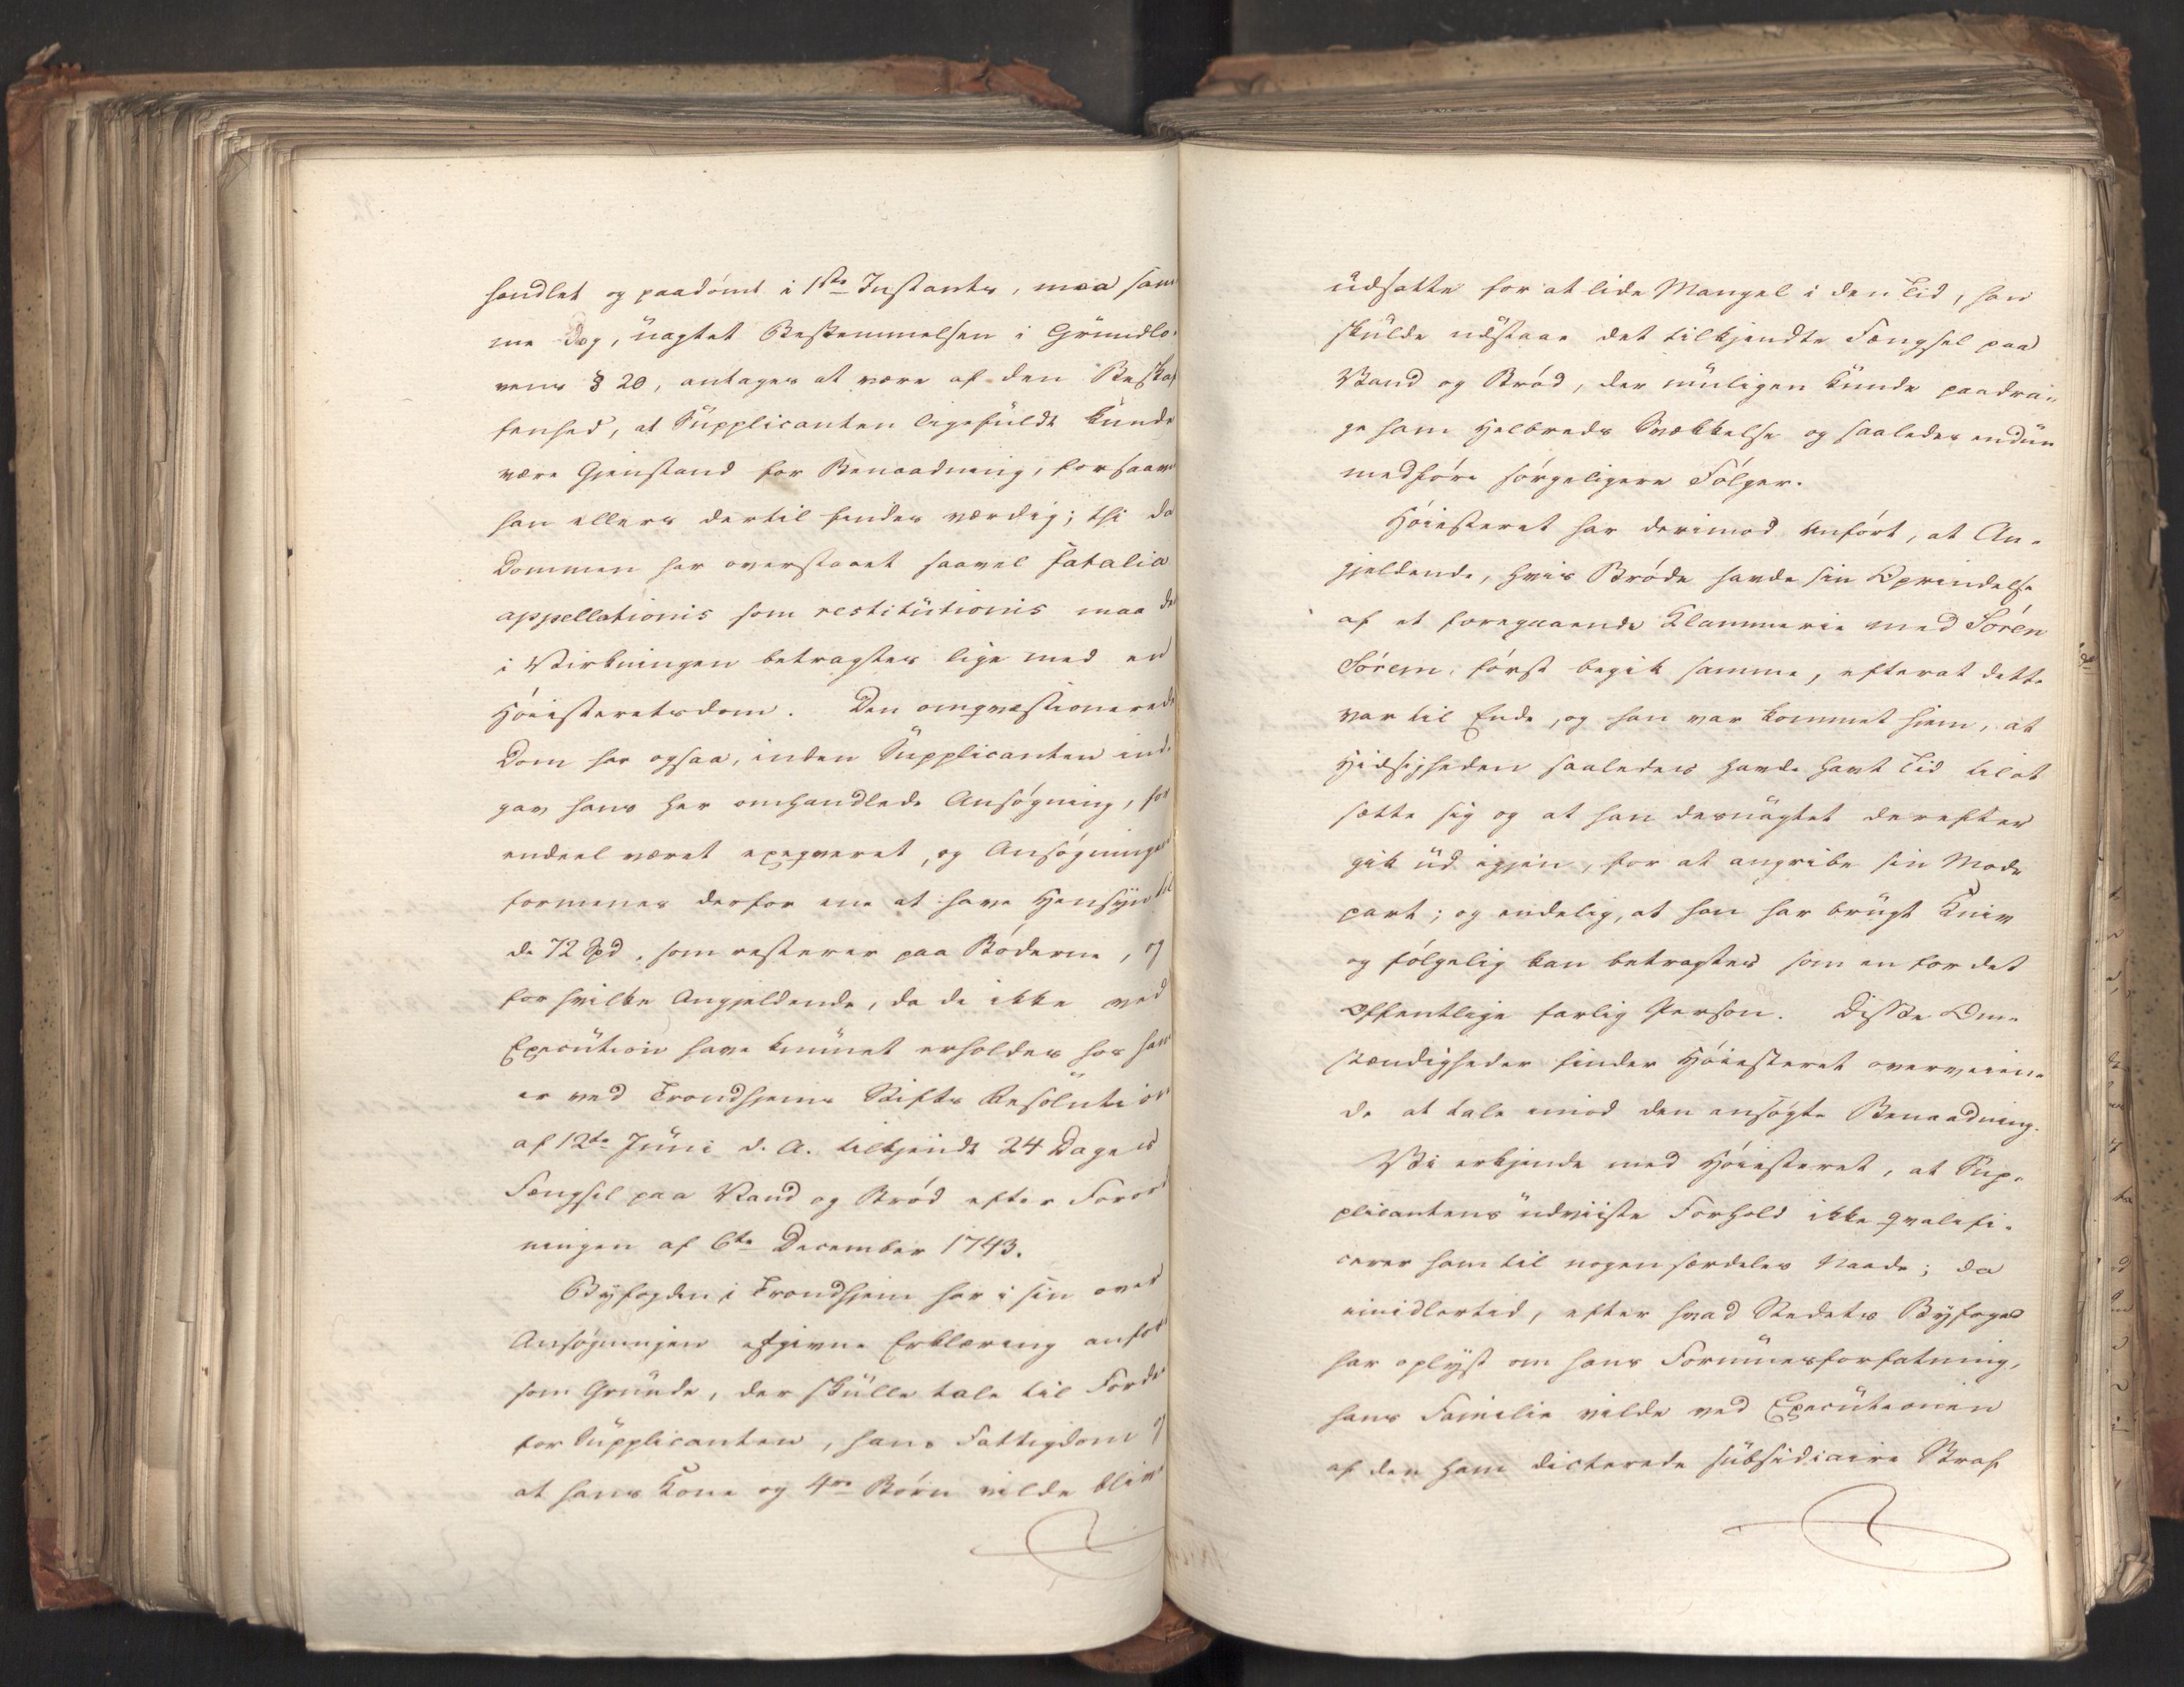 handlet og paadömt i 1ste Instants, maa sam
me dog, uagtet Bestemmelsen i Grundlo-
vens § 20, antages at være af den Beskaf
fenhed, at Supplicanten ligefuldt kunde
være Gjenstand for Benaadning, forsaavi
han ellers dertil findes værdig; thi da
Dommen har overstaaet saavel fatalia
appellationis som restitutionis maa de
i Virkningen betragtes lige med en
Höiesteretsdom. Den omqvæstionerede
Dom har ogsaa, inden Supplicanten ind-
gav hans her omhandlede Ansögning, for
endeel været exeqveret, og Ansögningen
formenes derfor ene at have Hensyn til
de 72 Spd. som resterer paa Böderne, og
for hvilke Angjeldende, da de ikke ved
Execution have kunnet erholdes hos ham
er ved Trondhjems Stifts Resolution
af 12te Juni d. A. tilkjendt 24 Dages
Fængsel paa Vand og Bröd efter Forord
ningen af 6te December 1743.
Byfogden i Trondhjem har i sin over
Ansögningen afgivne Erklæring anfört
som Grunde, der skulle tale til Fordel
for Supplicanten, hans Fattigdom og
at hans Kone og 4re Börn vilde blive
udsatte for at lide Mangel i den Tid, han
skulde udstaae det tilkjendte Fængsel paa
Vand og Bröd, der muligen kunde paadra-
ge ham Helbreds Svækkelse og saaledes endnu
medföre sörgeligere Fölger.
Höiesteret har derimod anfört, at An-
gjeldende, hvis Bröde havde sin Oprindelse
af et foregaaende Klammerie med Sören
Sörem, först begik samme, efterat dette
var til Ende, og han var kommet hjem, at
Hidsigheden saaledes havde havt Tid til at
sætte sig og at han desuagtet derefter
gik ud igjen, for at angribe sin Mod-
part; og endelig, at han har brugt Kniv
og fölgelig kan betragtes som en for det
Offentlige farlig Person. Disse Om-
stændigheder finder Höiesteret overveien-
de at tale imod den ansögte Benaadning.
Vi erkjende med Höiesteret, at Sup-
plicantens udviiste Forhold ikke qvalifi-
cerer ham til nogen særdeles Naade; da
imidlertid, efter hvad Stedets Byfoged
har oplyst om hans Formuesforfatning,
hans Familie vilde ved Executionen
af den ham dicterede subsidiaire Straf